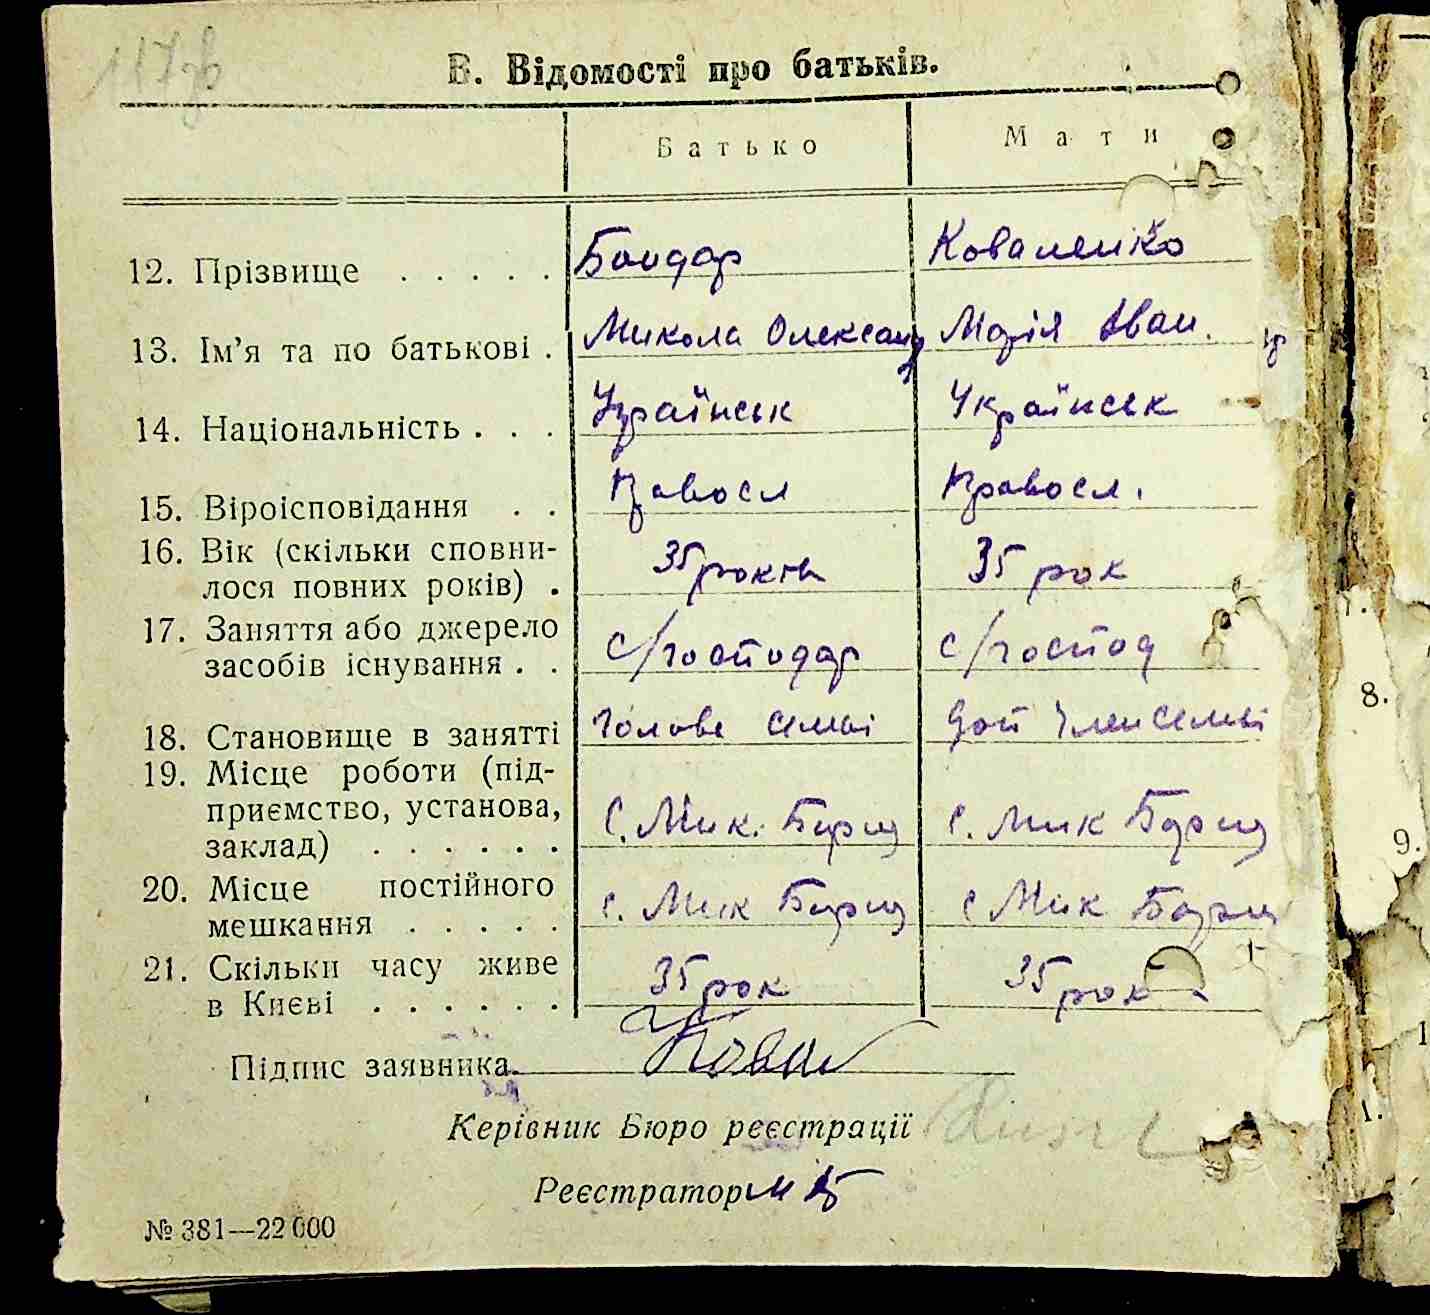 117зв
В. Відомості про батьків.
Батько Мати
12. Прізвище . . . . . Бондар Коваленко
13. Ім’я та по батькові . Микола Олександ Марія Іван.
14. Національність . . . Українськ Українськ
15. Віроісповідання . . Павосл Правосл.
16. Вік (скільки сповни-
лося повних років) . 35 рокив 35 рок
17. Заняття або джерело
засобів існування . . с/господар с/господ
18. Становище в занятті Голове семьї доп член семьї
19. Місце роботи (під-
приємство, установа,
заклад) . . . . . . с. Мик. Борщ с. Мик Борщ
20. Місце постійного
мешкання . . . . . с. Мик Борщ с Мик Борщ
21. Скільки часу живе
в Києві . . . . . . 35 рок 35 рок
Підпис заявника Кова
Керівник Бюро реєстрації
Реєстратор
№ 381—22 000
8.
9.